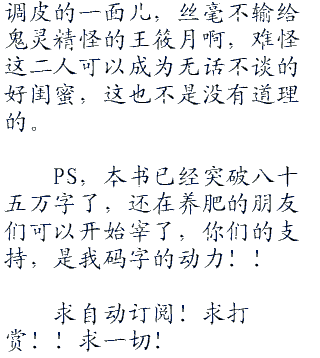 调皮的一面儿，丝毫不输给
鬼灵精怪的王筱月啊，难怪
这二人可以成为无话不谈的
好闺蜜，这也不是没有道理
的。
PS，本书已经突破八十
五万字了，还在养肥的朋友
们可以开始宰了，你们的支
持，是我码字的动力！！
求自动订阅！求打
赏！！求一切！